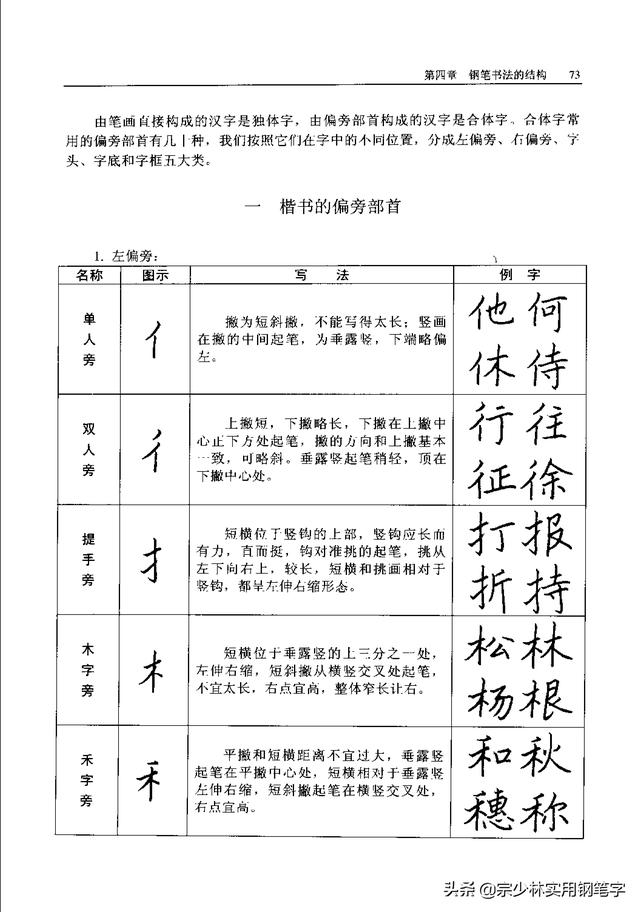 第四章 钢笔书法的结构 73
由笔画直接构成的汉字是独体字，由偏旁部首构成的汉字是合体字。合体字常
用的偏旁部首有几十种，我们按照它们在字中的不同位置，分成左偏旁、右偏旁、字
头、字底和字框五大类。
一 楷书的偏旁部首
1. 左偏旁：
名称 图示 写法 例字
单人旁
亻
撇为短斜撇，不能写得太长；竖画
在撇的中间起笔，为垂露竖，下端略偏
左。
他何
休侍
双人旁
彳
上撇短，下撇略长，下撇在上撇中
心正下方处起笔，撇的方向和上撇基本
一致，可略斜。垂露竖起笔稍轻，顶在
下撇中心处。
行往
征徐
提手旁
扌
短横位于竖钩的上部，竖钩应长而
有力，直而挺，钩对准挑的起笔，挑从
左下向右上，较长，短横和挑画相对于
竖钩，都呈左伸右缩形态。
打报
折持
木字旁
木
短横位于垂露竖的上三分之一处，
左伸右缩，短斜撇从横竖交叉处起笔，
不宜太长，右点宜高，整体窄长让右。
松林
杨根
禾字旁
禾
平撇和短横距离不宜过大，垂露竖
起笔在平撇中心处，短横相对于垂露竖
左伸右缩，短斜撇起笔在横竖交叉处，
右点宜高。
和秋
穗称
头条 @宗少林实用钢笔字